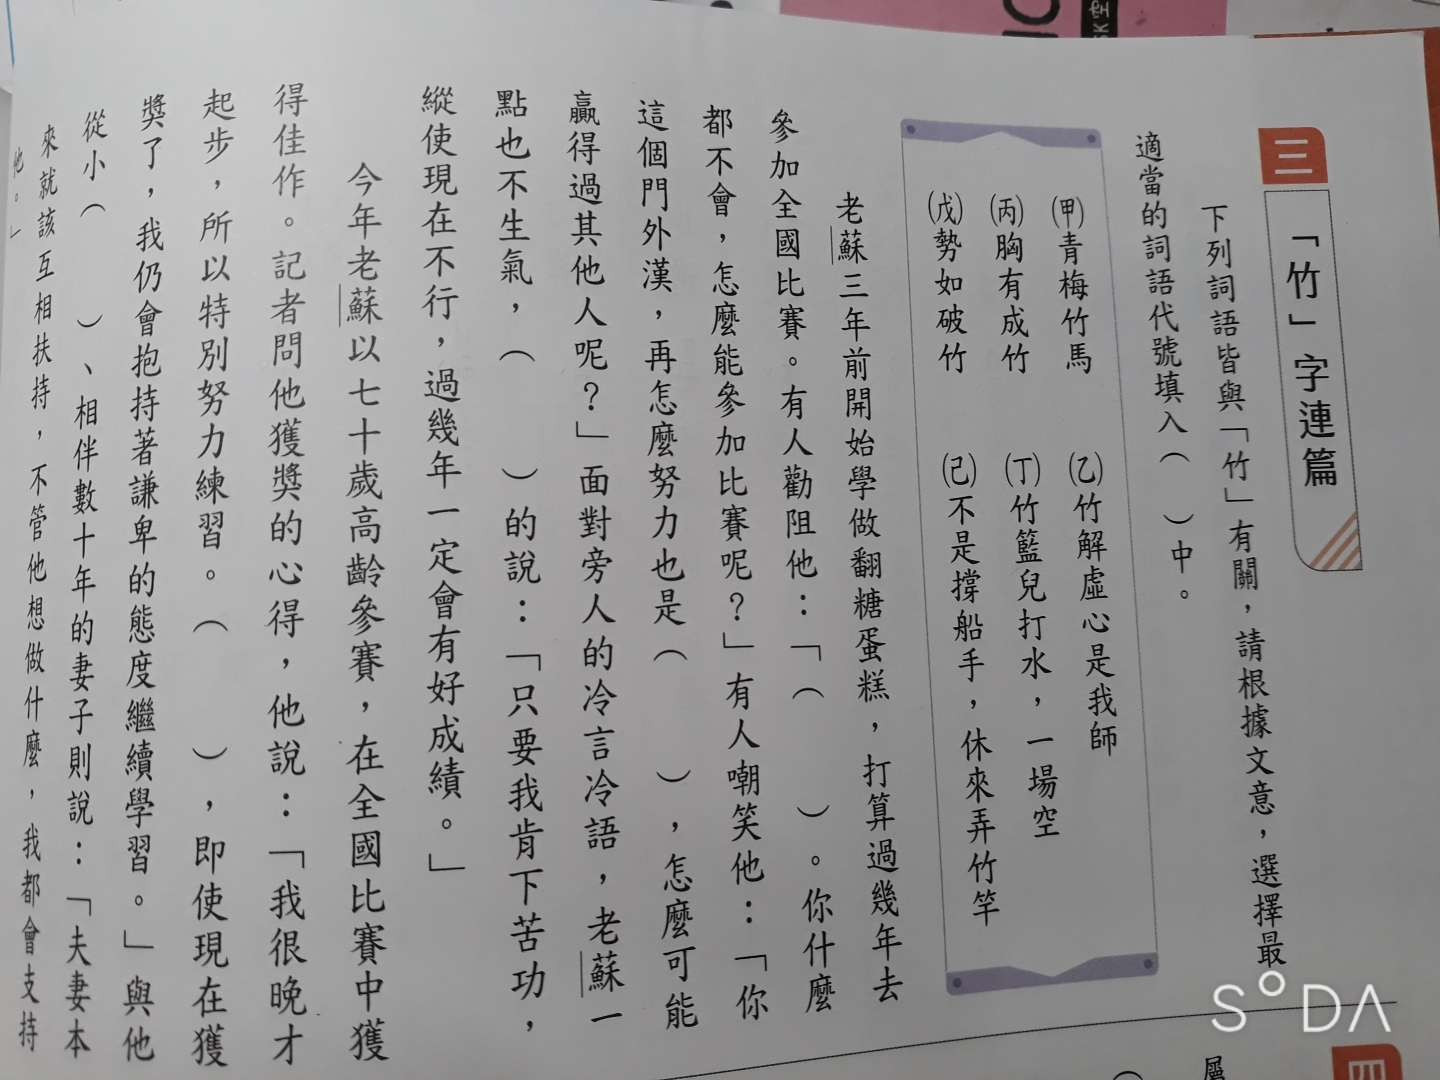 三
「竹」字連篇
下列詞語皆與「竹」有關，請根據文意，選擇最
適當的詞語代號填入（　）中。
㈠青梅竹馬　(乙)竹解虛心是我師
(丙)胸有成竹　(丁)竹籃兒打水，一場空
(戊)勢如破竹　(己)不是撐船手，休來弄竹竿
老蘇三年前開始學做翻糖蛋糕，打算過幾年去
參加全國比賽。有人勸阻他：「（　）。你什麼
都不會，怎麼能參加比賽呢？」有人嘲笑他：「你
這個門外漢，再怎麼努力也是（　），怎麼可能
贏得過其他人呢？」面對旁人的冷言冷語，老蘇一
點也不生氣，（　）的說：「只要我肯下苦功，
縱使現在不行，過幾年一定會有好成績。」
今年老蘇以七十歲高齡參賽，在全國比賽中獲
得佳作。記者問他獲獎的心得，他說：「我很晚才
起步，所以特別努力練習。（　），即使現在獲
獎了，我仍會抱持著謙卑的態度繼續學習。」與他
從小（　）、相伴數十年的妻子則說：「夫妻本
來就該互相扶持，不管他想做什麼，我都會支持
他。」
四
屬
SK
SODA